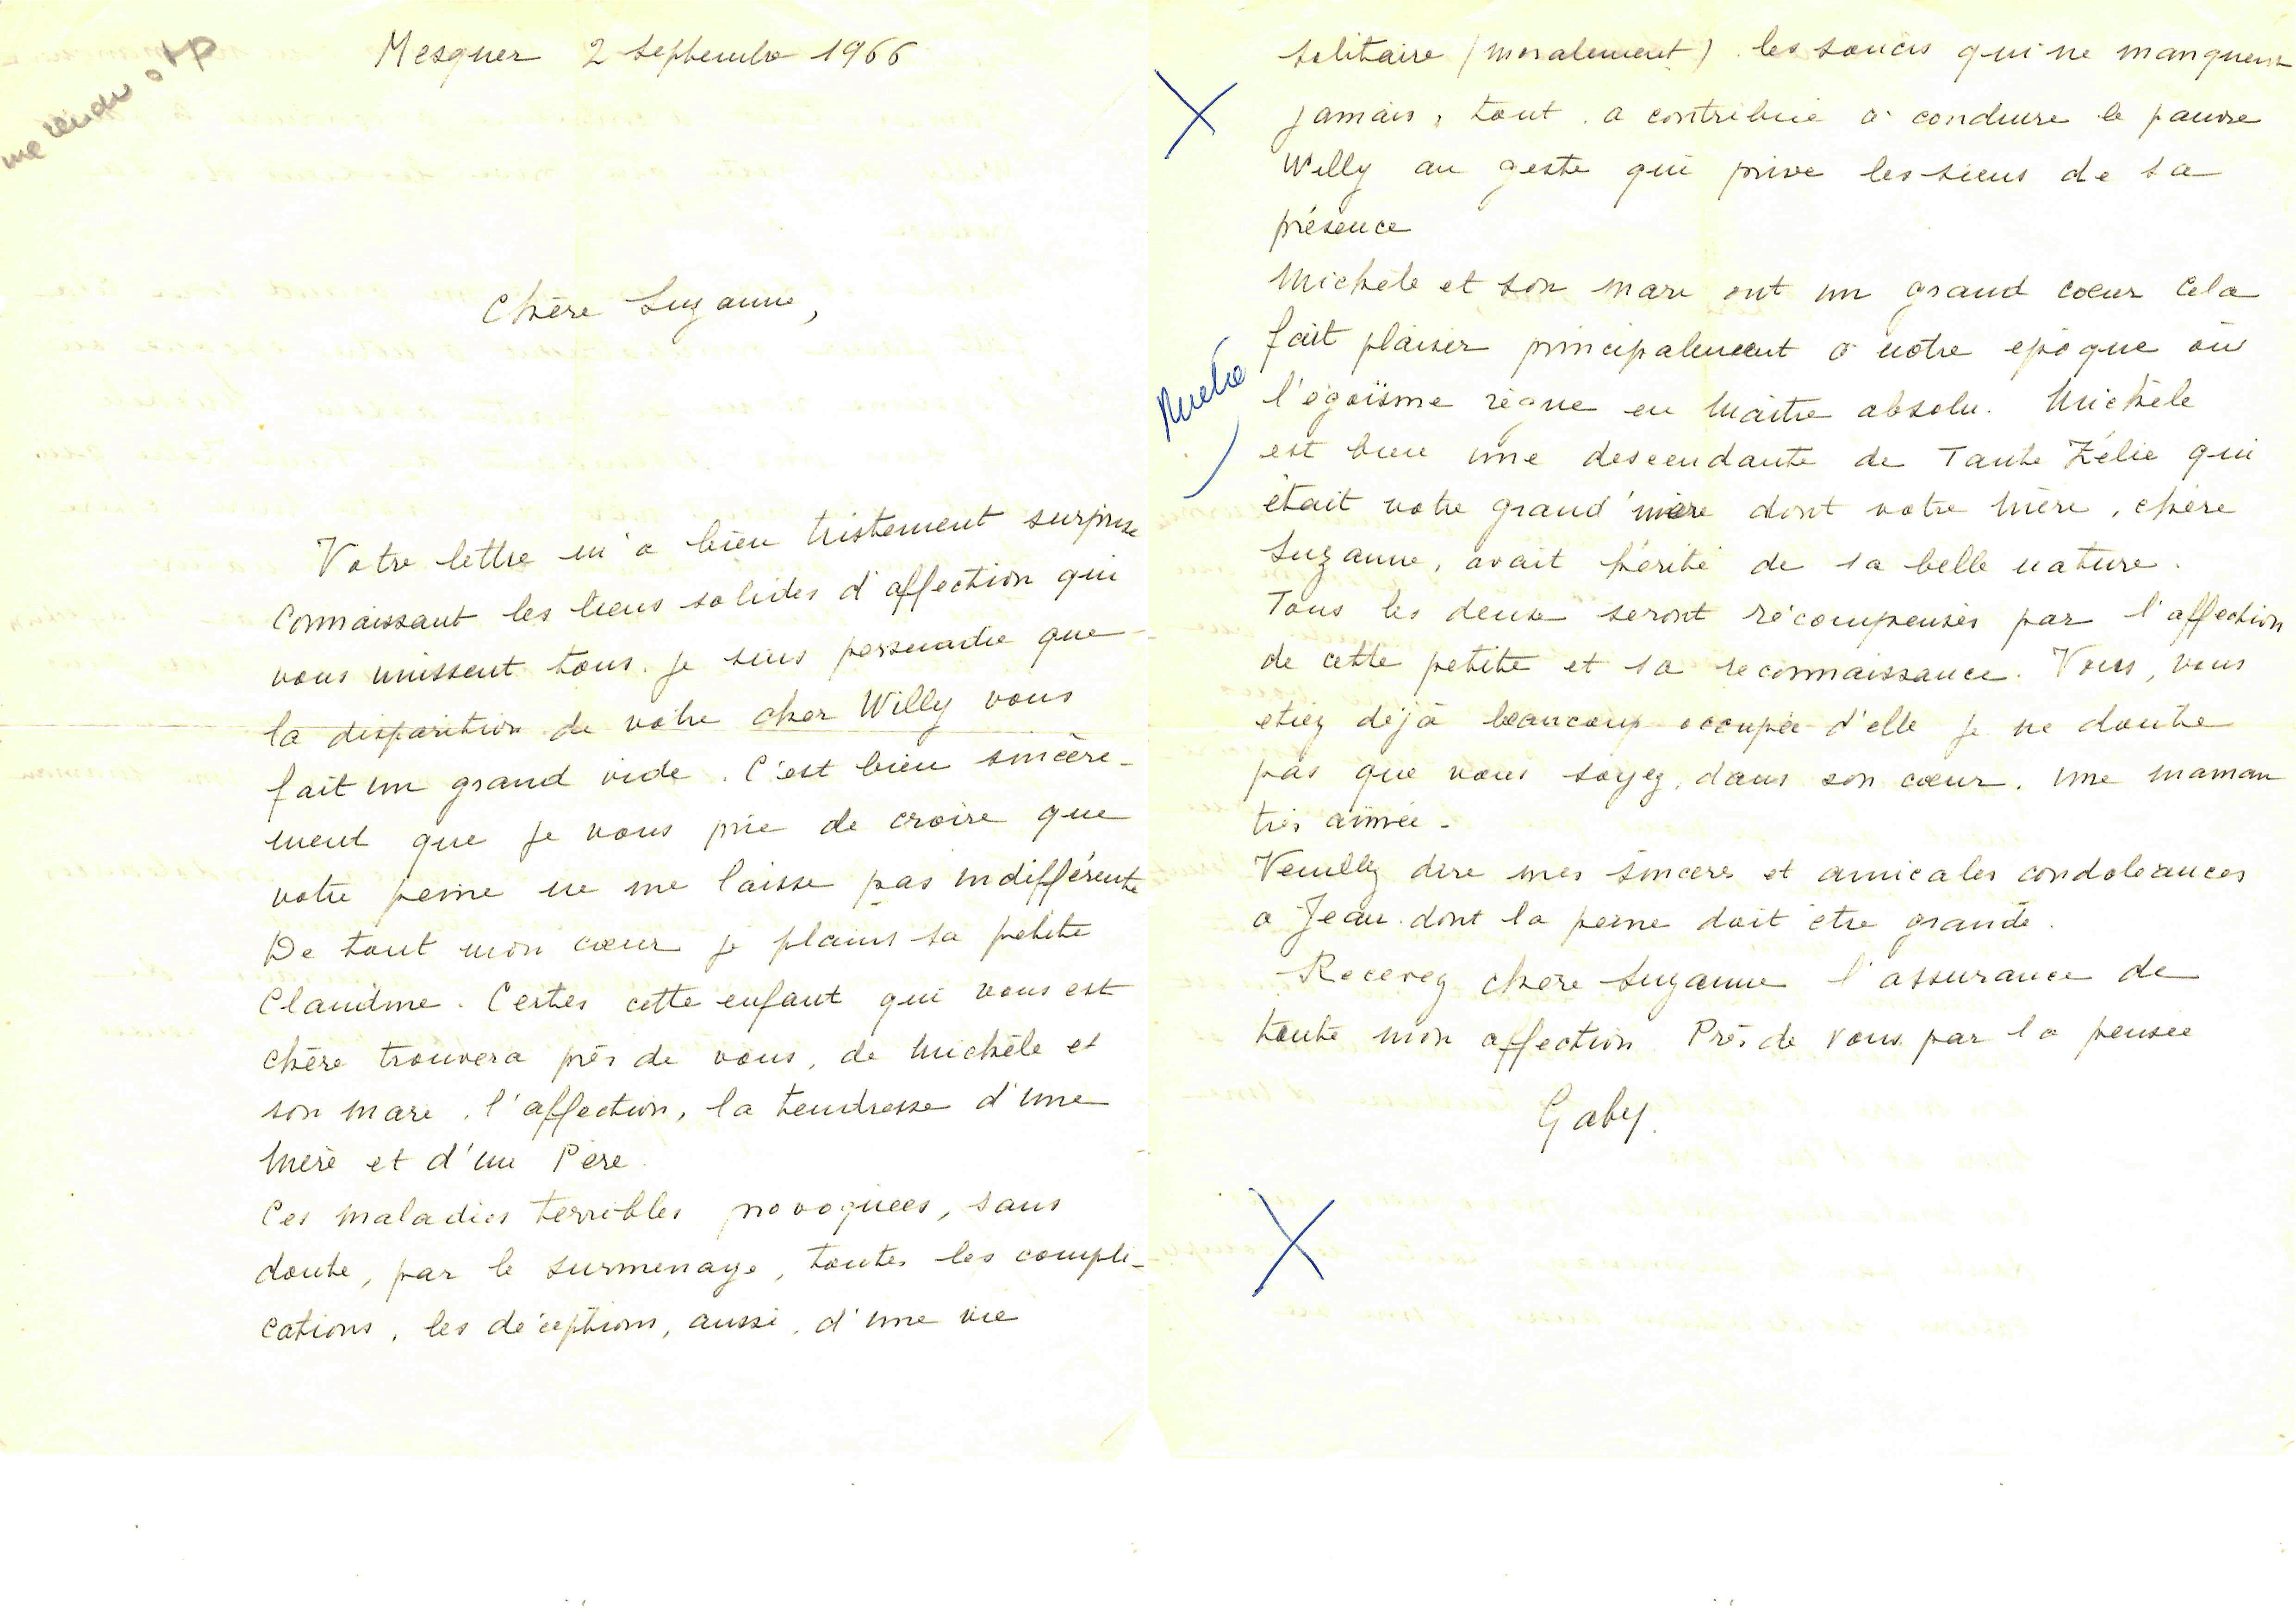 me rendre stp
Mesquer 2 Septembre 1966
Chère Suzanne,
Votre lettre m'a bien tristement surprise
Connaissant les liens solides d'affection qui
vous unissent tous. Je suis persuadée que
la disparition de votre cher Willy vous
fait un grand vide. C'est bien sincère-
ment que je vous prie de croire que
votre peine ne me laisse pas indifférente
De tout mon cœur je plains sa petite
Claudine. Certes cette enfant qui vous est
chère trouvera près de vous, de Michèle et
son mari, l'affection, la tendresse d'une
Mère et d'un Père.
Ces maladies terribles provoquées, sans
doute, par le surmenage, toutes les compli-
cations, les déceptions, aussi, d'une vie
solitaire (moralement). les soucis qui ne manquent
jamais, tout a contribué à conduire le pauvre
Willy au geste qui prive les siens de sa
présence
Michèle et son mari ont un grand cœur Cela
fait plaisir principalement à notre époque où
l'égoïsme règne en Maître absolu. Michèle
est bien une descendante de Tante Zélie qui
était votre grand'mère dont votre Mère, chère
Suzanne, avait hérité de sa belle nature.
Tous les deux seront récompensés par l'affection
de cette petite et sa reconnaissance. Vous, vous
étiez déjà beaucoup occupée d'elle je ne doute
pas que vous soyez, dans son cœur, une maman
très aimée -
Veuillez dire mes sincères et amicales condoléances
à Jean dont la peine doit être grande.
Recevez chère Suzanne l'assurance de
toute mon affection. Près de vous par la pensée
Gaby.